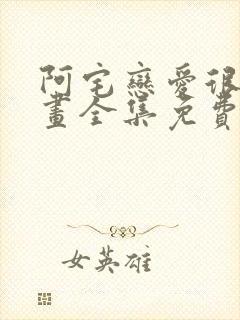 阿宅戀愛很
畫全集免費
女英雄